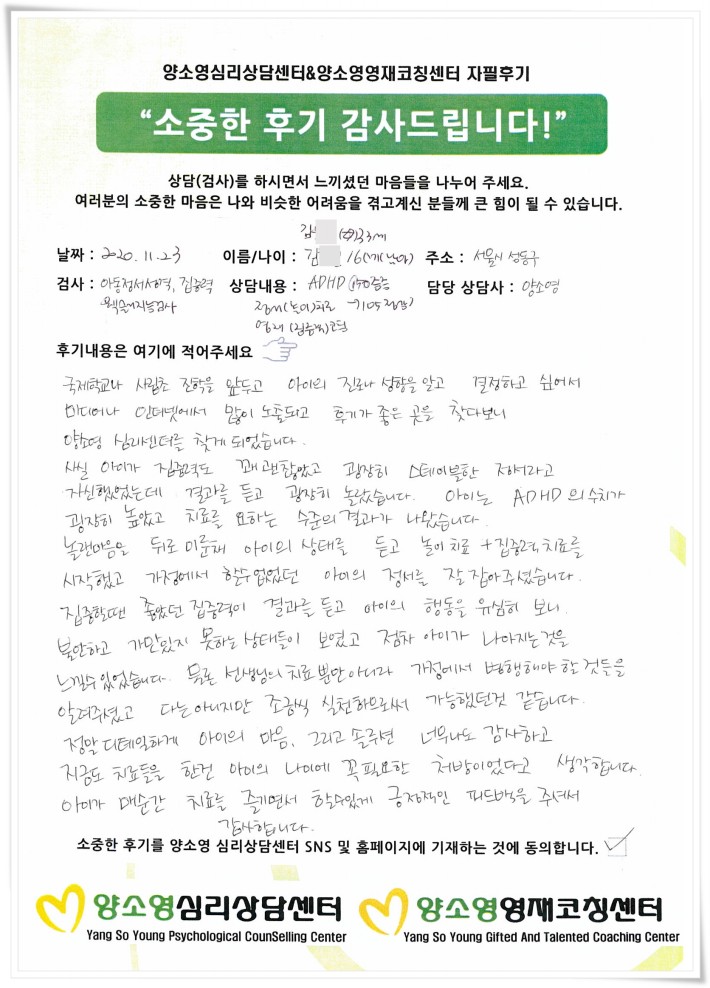 양소영심리상담센터&양소영영재코칭센터 자필후기
“소중한 후기 감사드립니다!”
상담(검사)를 하시면서 느끼셨던 마음들을 나누어 주세요.
여러분의 소중한 마음은 나와 비슷한 어려움을 겪고계신 분들께 큰 힘이 될 수 있습니다.
김
날짜 : 2020.11.23 이름/나이 : 김 /6 주소 : 서울시 성동구
검사 : 아동정서사회성, 집중력 상담내용 : ADHD 담당 상담사 : 양소영
웩슬러지능검사 정서(놀이)치료
영재(집중력)코칭
후기내용은 여기에 적어주세요
국제학교나 사립초 진학을 앞두고 아이의 진로나 성향을 알고 결정하고 싶어서
미디어나 인터넷에서 많이 노출되고 후기가 좋은 곳을 찾다보니
양소영 심리센터를 찾게 되었습니다.
사실 아이가 집중력도 꽤 괜찮았고 굉장히 스테이블한 자녀라고
자신했었는데 결과를 듣고 굉장히 놀랐습니다. 아이는 ADHD의 수치가
굉장히 높았고 치료를 요하는 수준의 결과가 나왔습니다.
놀랜마음을 뒤로 미룬채 아이의 상태를 듣고 놀이치료 + 집중력치료를
시작했고 가정에서 할수 없었던 아이의 정서를 잘 잡아주셨습니다.
집중할땐 좋았던 집중력이 결과를 듣고 아이의 행동을 유심히 보니,
불안하고 가만있지 못하는 상태들이 보였고 점차 아이가 나아지는것을
느낄수 있었습니다. 물론 선생님의 치료 뿐만 아니라 가정에서 병행해야 할 것들을
알려주셨고 다는 아니지만 조금씩 실천함으로써 가능했던것 같습니다.
정말 디테일하게 아이의 마음, 그리고 솔루션 너무나도 감사하고
지금도 치료들을 한건 아이의 나이에 꼭 필요한 처방이었다고 생각합니다.
아이가 매순간 치료를 즐기면서 할수있게 긍정적인 피드백을 주셔서
감사합니다.
소중한 후기를 양소영 심리상담센터 SNS 및 홈페이지에 기재하는 것에 동의합니다.
양소영심리상담센터 양소영영재코칭센터
Yang So Young Psychological CounSelling Center Yang So Young Gifted And Talented Coaching Center